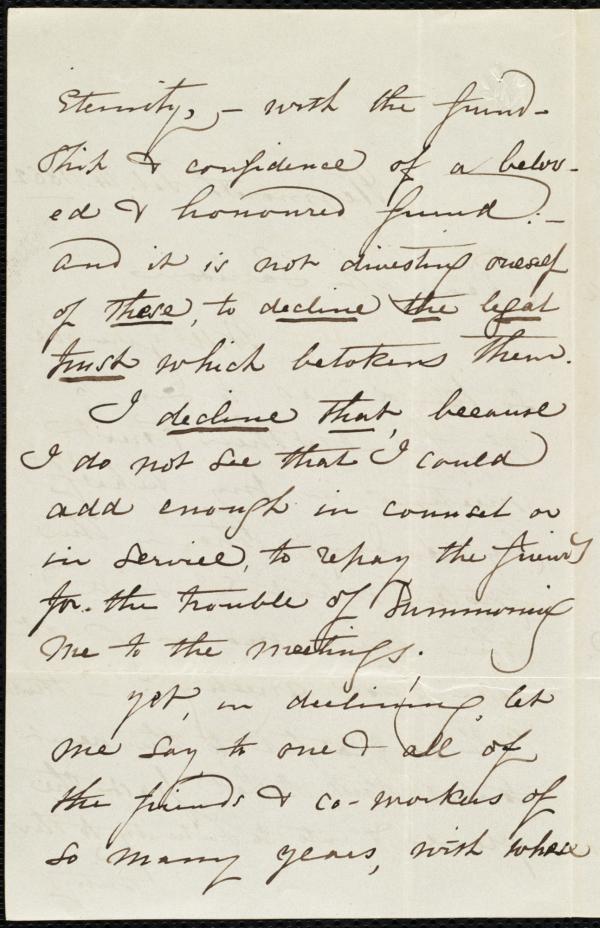 Eternity, — with the friend-
ship & confidence of a belov-
ed & honoured friend: —
and it is not divesting oneself
of these, to decline the legal
trust which betokens them.
I decline that, because
I do not see that I could
add enough in counsel or
in service, to repay the friends
for the trouble of summoning
me to the meetings.
Yet, in declining, let
me say, to one & all of
the friends & co-workers of
so many years, with whose